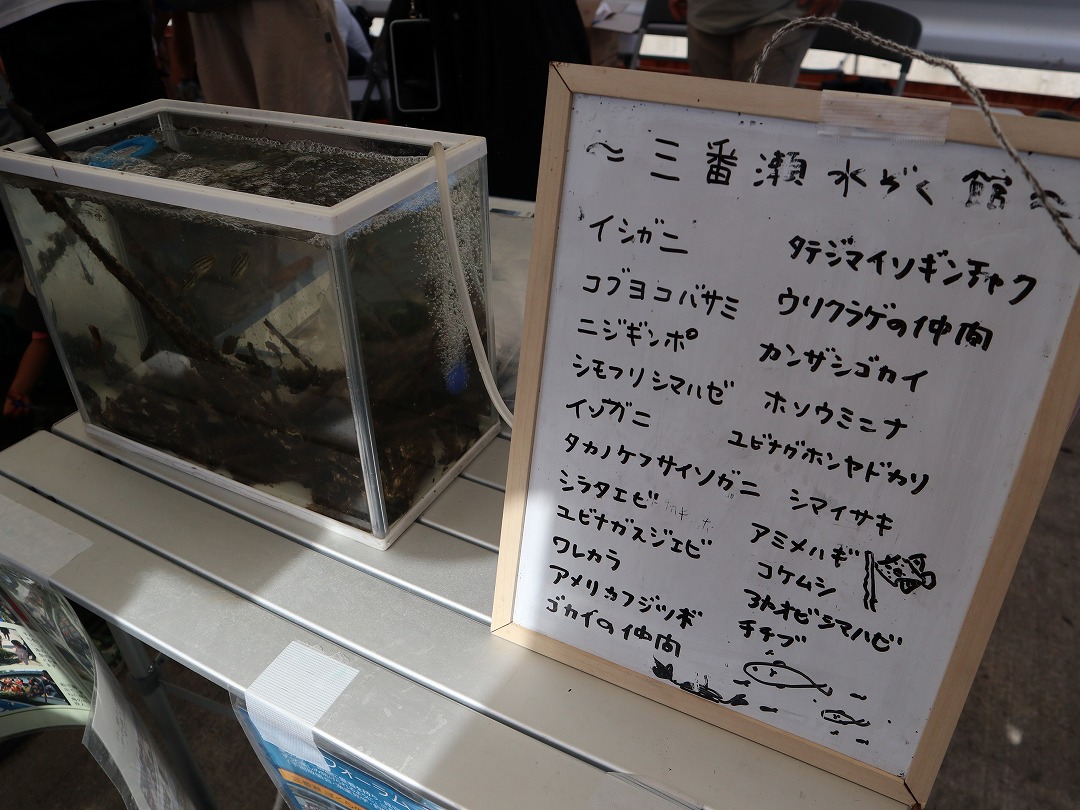 ～三番瀬 水ぞく館～
イシガニ
コブヨコバサミ
ニジギンポ
シモフリシマハゼ
イソガニ
タカノケフサイソガニ
シラタエビ
ユビナガスジエビ
ワレカラ
アメリカフジツボ
ゴカイの仲間
タテジマイソギンチャク
ウリクラゲの仲間
カンザシゴカイ
ホソウミニナ
ユビナガホンヤドカリ
シマイサキ
アミメハギ
コケムシ
チチブ